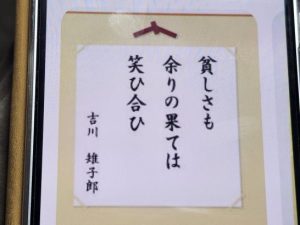 貧しさも
余りの果ては
笑ひ合ひ
吉川 雉子郎